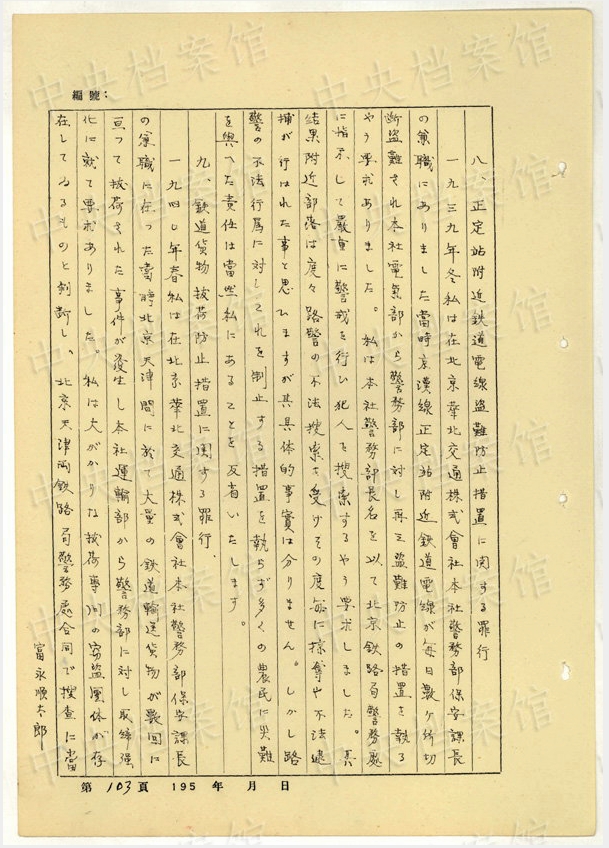 編號：
八、正定站附近鉄道電線盗難防止措置に関する罪行
一九三九年冬私は在北京華北交通株式會社本社警務部保安課長
の兼職にありました當時京漢線正定站附近鉄道電線が毎日数ヶ所切
断盗難され本社電気部から警務部に対し再三盗難防止の措置を執る
やう要求ありました。私は本社警務部長名を以て北京鉄路局警務處
に指示して厳重に警戒を行ひ犯人を捜索するやう要求しました。其
結果附近部落は度々路警の不法捜索を受けその度毎に掠奪や不法逮
捕が行はれた事と思ひますが其具体的事實は分りません。しかし路
警の不法行為に対してこれを制止する措置を執らず多くの農民に災難
を與へた責任は當然私にあることを反省いたします。
九、鉄道貨物抜荷防止措置に関する罪行.
一九四〇年春私は在北京華北交通株式會社本社警務部保安課長
の兼職に在った當時北京天津間に於て大量の鉄道輸送貨物が数回に
亘って抜荷された事件が發生し本社運輸部から警務部に対し取締强
化に就て要求ありました。私は大がかりな抜荷専門の窃盗團体が存
在してゐるものと判断し、北京天津両鉄路局警務處合同で捜查に當
富永順太郎
第103頁 195 年 月 日
中央档案馆